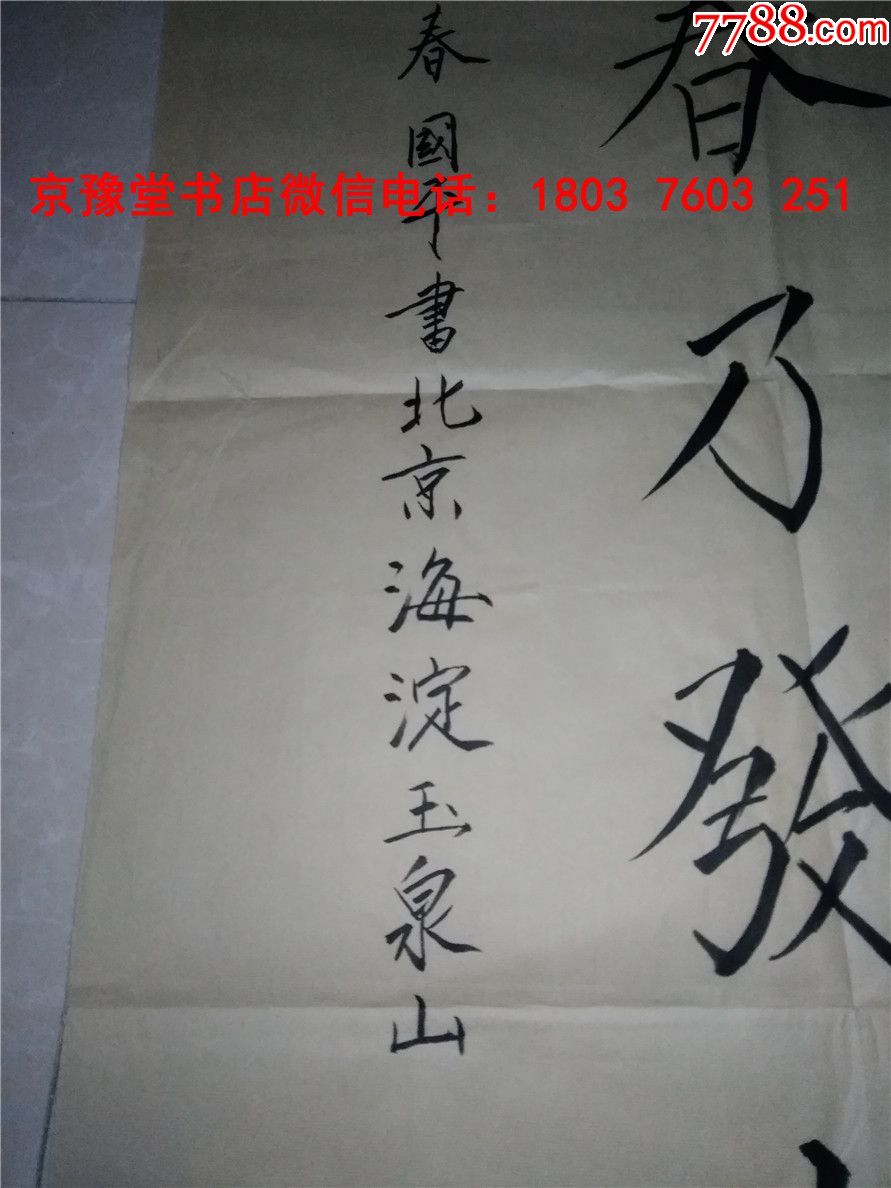 7788.com
京豫堂书店微信电话：1803 7603 251
春乃發
春國平書北京海淀玉泉山